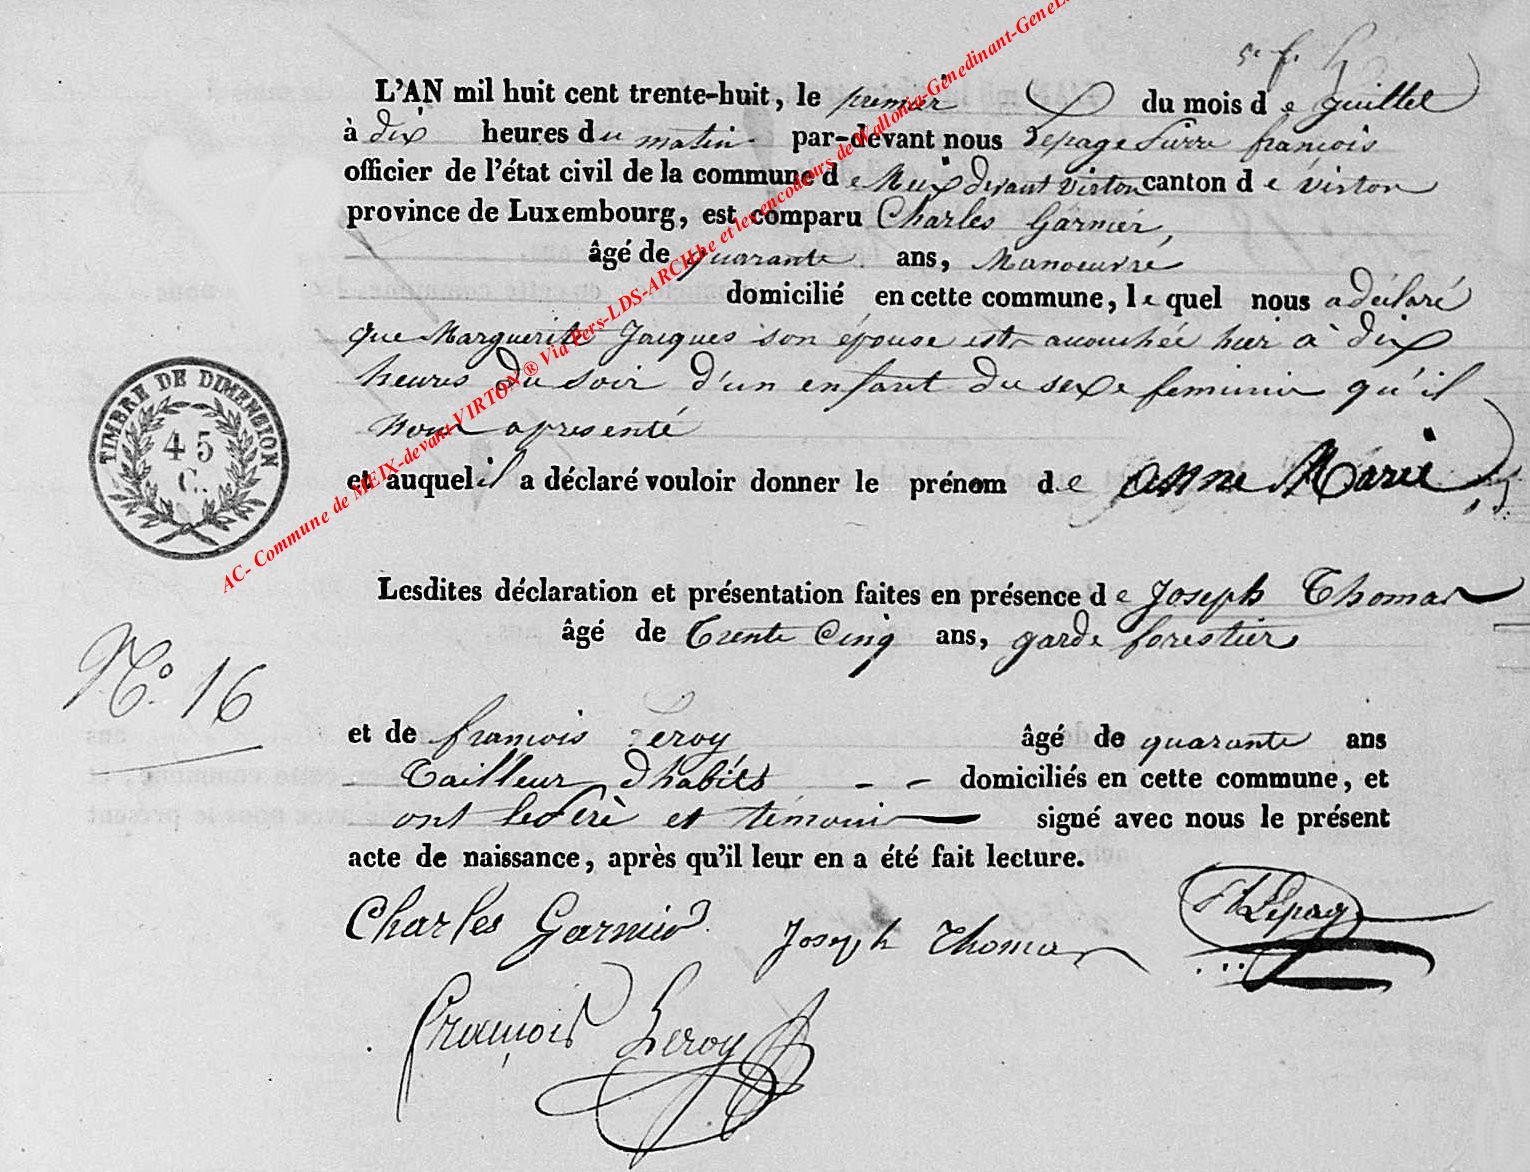 L'AN mil huit cent trente-huit, le premier du mois de juillet
à dix heures du matin par-devant nous Lepage Pierre françois
officier de l'état civil de la commune de Meix devant virton canton de virton
province de Luxembourg, est comparu Charles Garnier,
âgé de quarante ans, Manoeuvre
domicilié en cette commune, lequel nous a déclaré
que Marguerite Jacques son épouse est accouchée hier à dix
heures du soir d'un enfant du sexe feminin qu'il
Nous a presenté
et auquel il a déclaré vouloir donner le prénom de Anne Marie
Lesdites déclaration et présentation faites en présence de Joseph Thomas
âgé de Trente Cinq ans, garde forestier
et de françois Leroy âgé de quarante ans
Tailleur d'habits - - domiciliés en cette commune, et
ont le Père et témoins signé avec nous le présent
acte de naissance, après qu'il leur en a été fait lecture.
Charles Garnier Joseph Thomas Lepage
François Leroy
No. 16
TIMBRE DE DIMENSION
45
C.
AC- Commune de MEIX-devant-VIRTON® Via Pers-LDS-ARCH.be et les encodeurs de Wallonia-Genedinant-GeneL